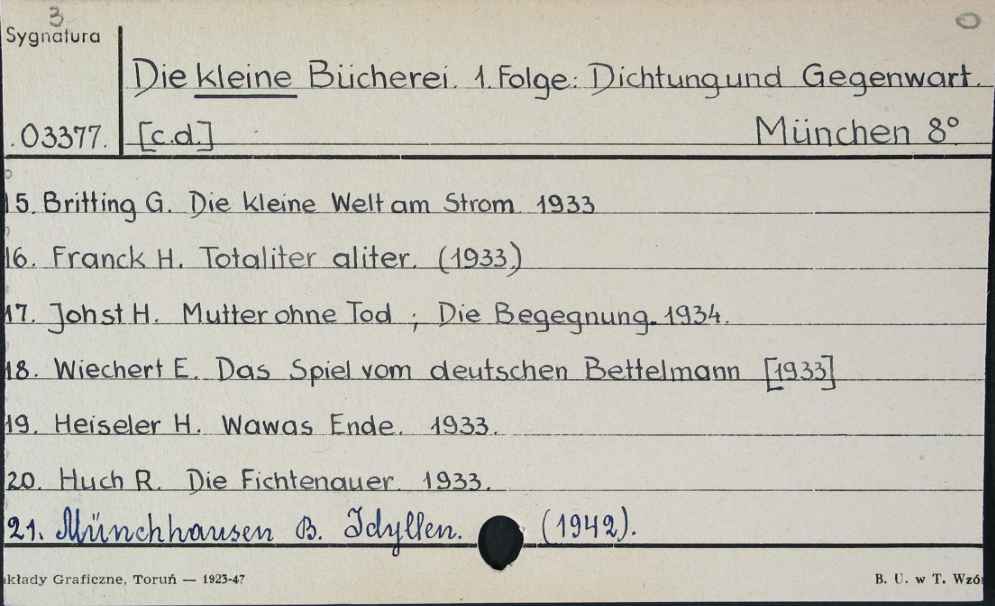 3
Sygnatura
Die kleine Bücherei. 1. Folge: Dichtung und Gegenwart.
03377. [c.d.] München 8°
15. Britting G. Die kleine Welt am Strom 1933
16. Franck H. Totaliter aliter. (1933)
17. Johst H. Mutter ohne Tod ; Die Begegnung. 1934.
18. Wiechert E. Das Spiel vom deutschen Bettelmann [1933]
19. Heiseler H. Wawas Ende. 1933.
20. Huch R. Die Fichtenauer. 1933.
21. Münchhausen B. Idyllen. (1942).
kłady Graficzne, Toruń — 1923-47 B. U. w T. Wzó